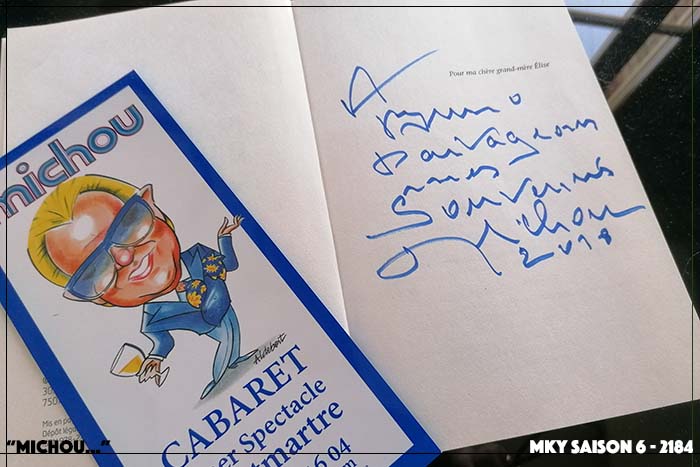 michou
Aldebert
CABARET
er Spectacle
tmartre
6 04
Pour ma chère grand-mère Élise
A Bruno
partageons
mes
Souvenirs
Michou
2018
Mis en pa
Dépôt léga
"MICHOU..."
MKY SAISON 6 - 2184